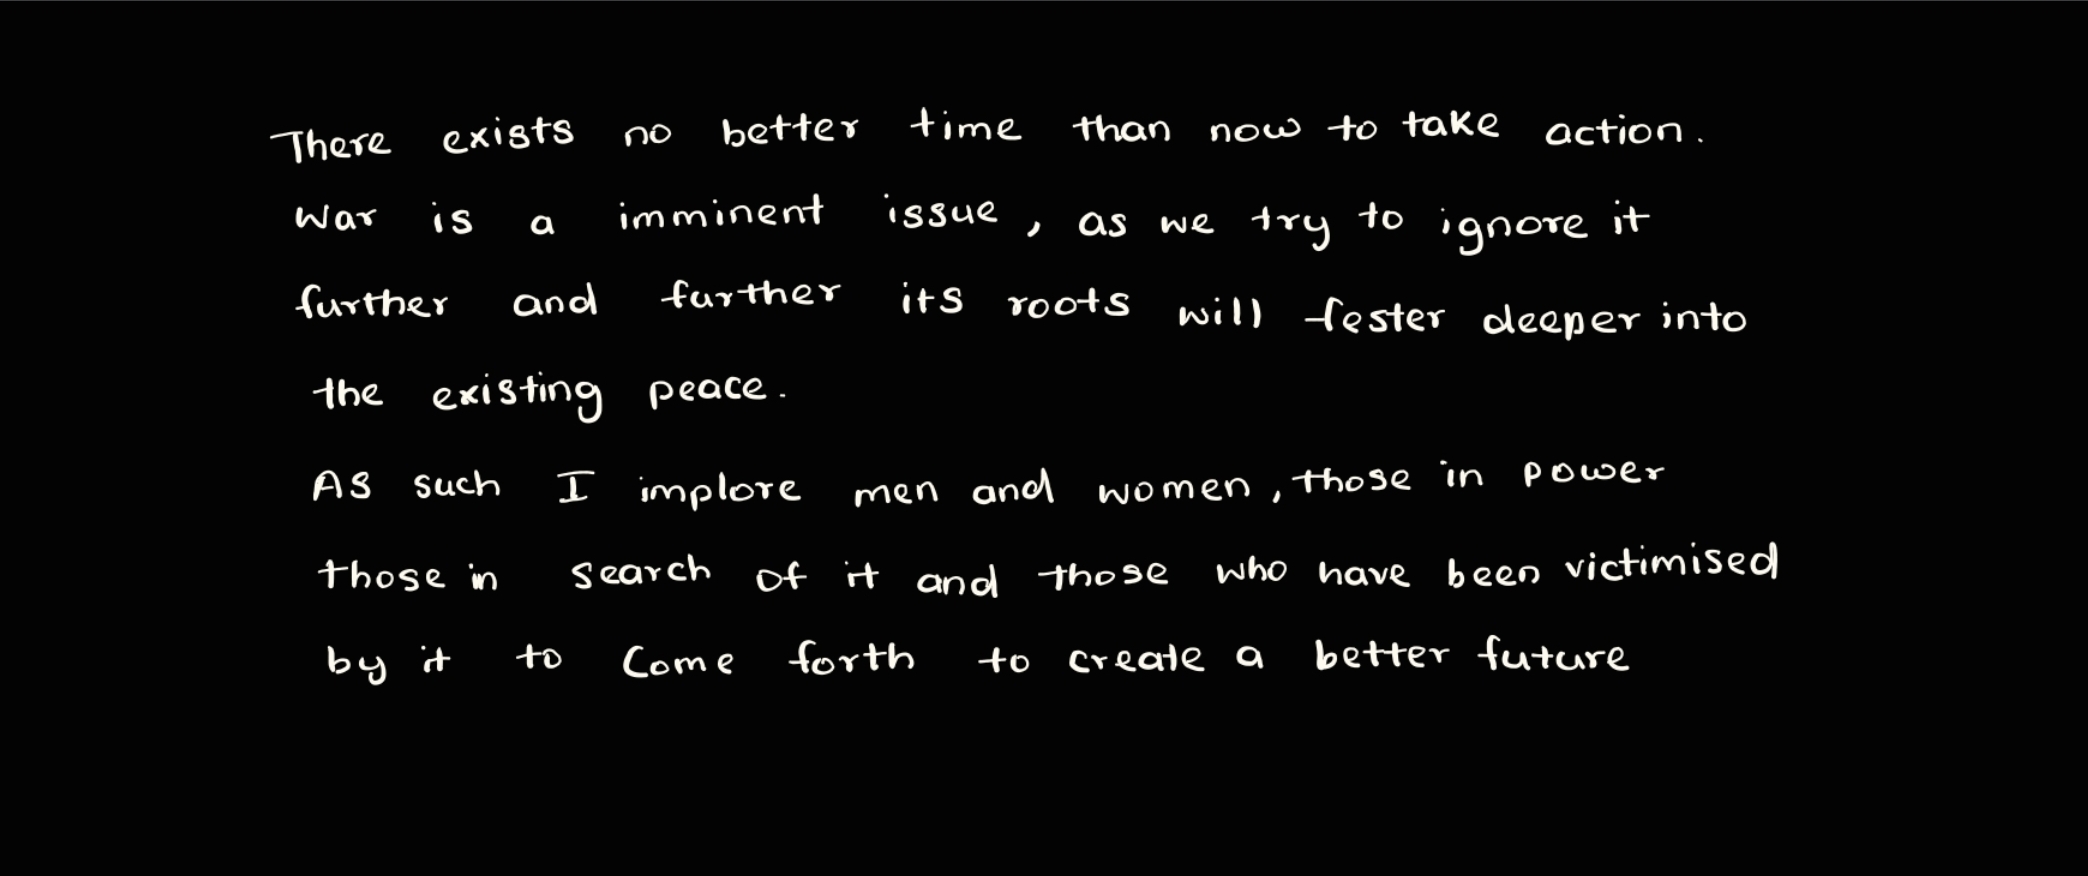 There exists no better time than now to take action.
War is a imminent issue, as we try to ignore it
further and further its roots will fester deeper into
the existing peace.
As such I implore men and women, those in power
those in search of it and those who have been victimised
by it to come forth to create a better future